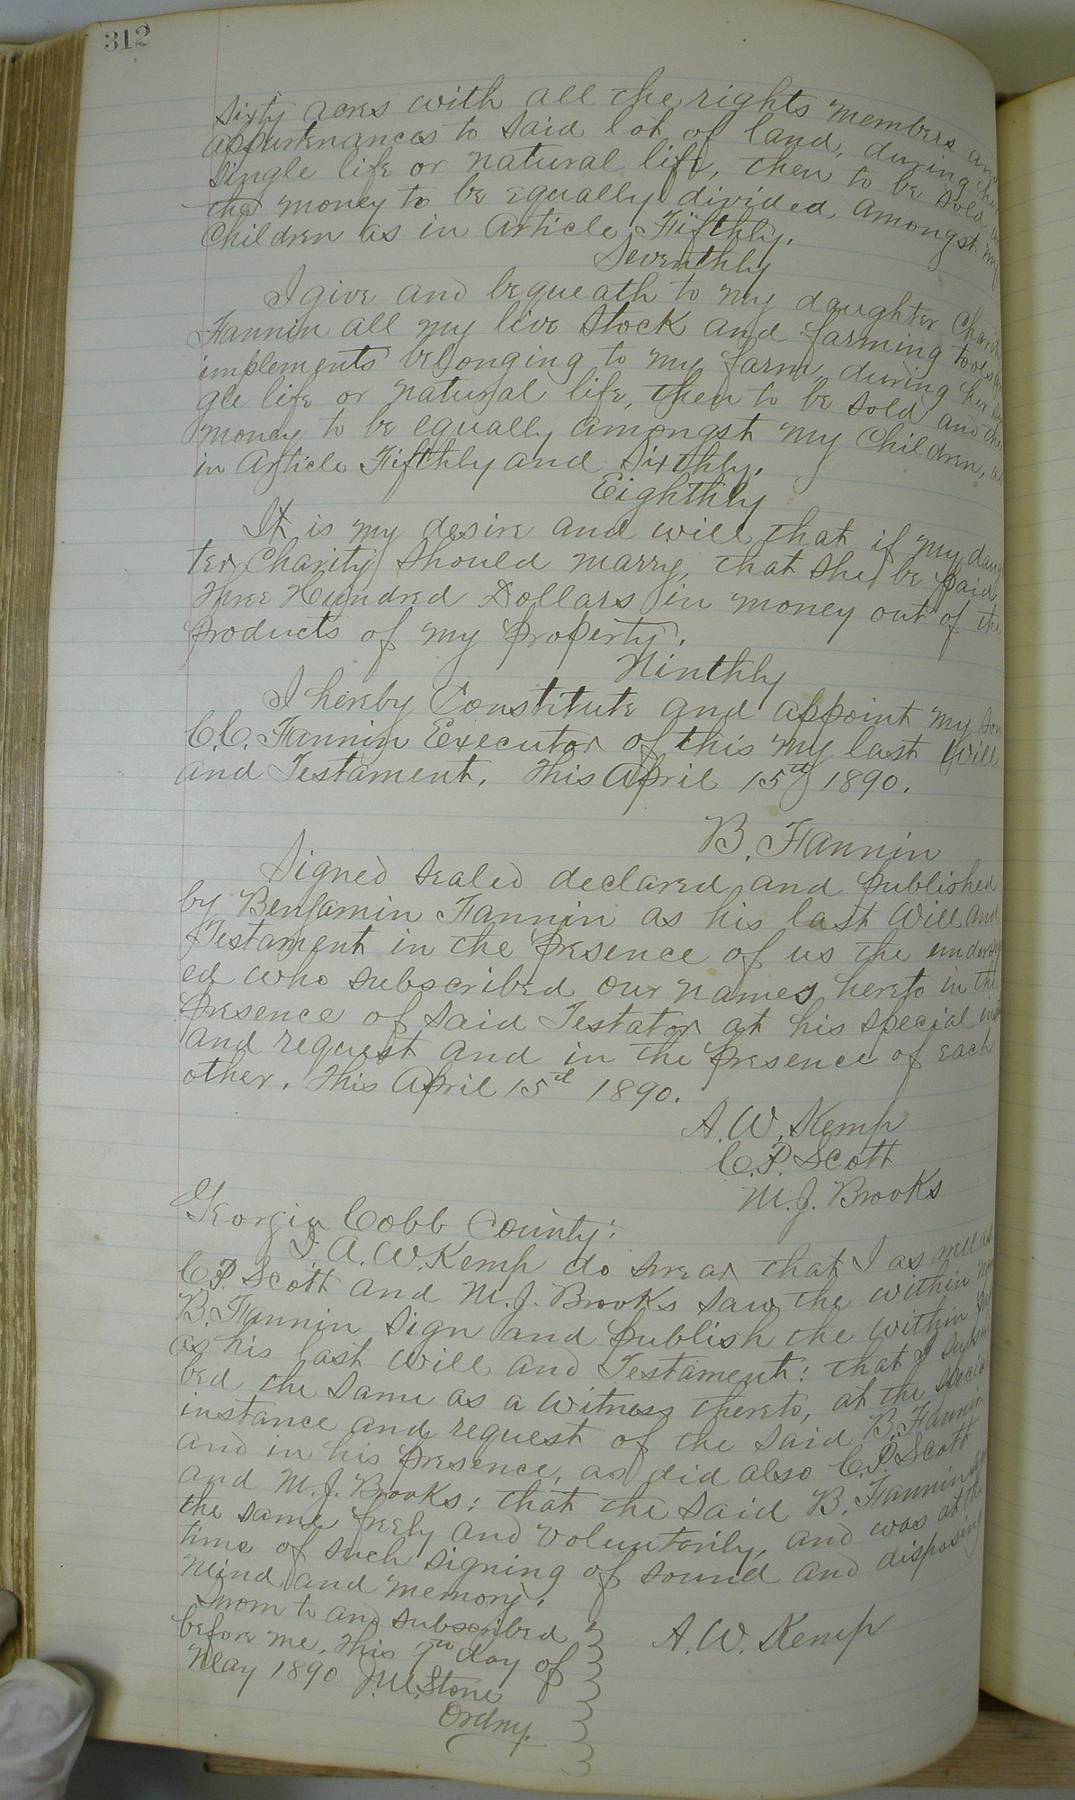 312
Sixty acres with all the rights members an
appurtenances to said lot of land, during her
single life or natural life, then to be sold, an
the money to be equally divided amongst my
Children as in Article Fifthly.
Seventhly
I give and bequeath to my daughter Charity
Fannin all my live stock and farming tools an
implements belonging to my farm during her sin
gle life or natural life, then to be sold and the
money to be equally amongst my Children, as
in Article Fifthly and Sixthly.
Eighthly
It is my desire and will that if my daugh
ter Charity should marry, that she be paid
Three Hundred Dollars in money out of the
products of my property.
Ninthly
I hereby Constitute and appoint my son
C.C. Fannin Executor of this my last Will
and Testament. This April 15th 1890.
B. Fannin
Signed sealed declared and published
by Benjamin Fannin as his last Will and
Testament in the presence of us the undersign
ed who subscribed our names hereto in the
presence of said Testator at his special inst
and request and in the presence of each
other. This April 15th 1890.
A. W. Kemp
C. P. Scott
M. J. Brooks
Georgia Cobb County:
I. A. W. Kemp do swear that I as well as
C. P. Scott and M. J. Brooks saw the within
B. Fannin sign and publish the within
as his last will and Testament: that I subscri
bed the same as a witness thereto, at the special
instance and request of the said B. Fannin
and in his presence, as did also C. P. Scott
and M. J. Brooks: that the said B. Fannin
the same freely and voluntarily, and was at the
time of such signing of sound and disposing
mind and memory.
Sworn to and subscribed
before me, this 7th day of
May 1890 J. M. Stone
Ordny.
A. W. Kemp